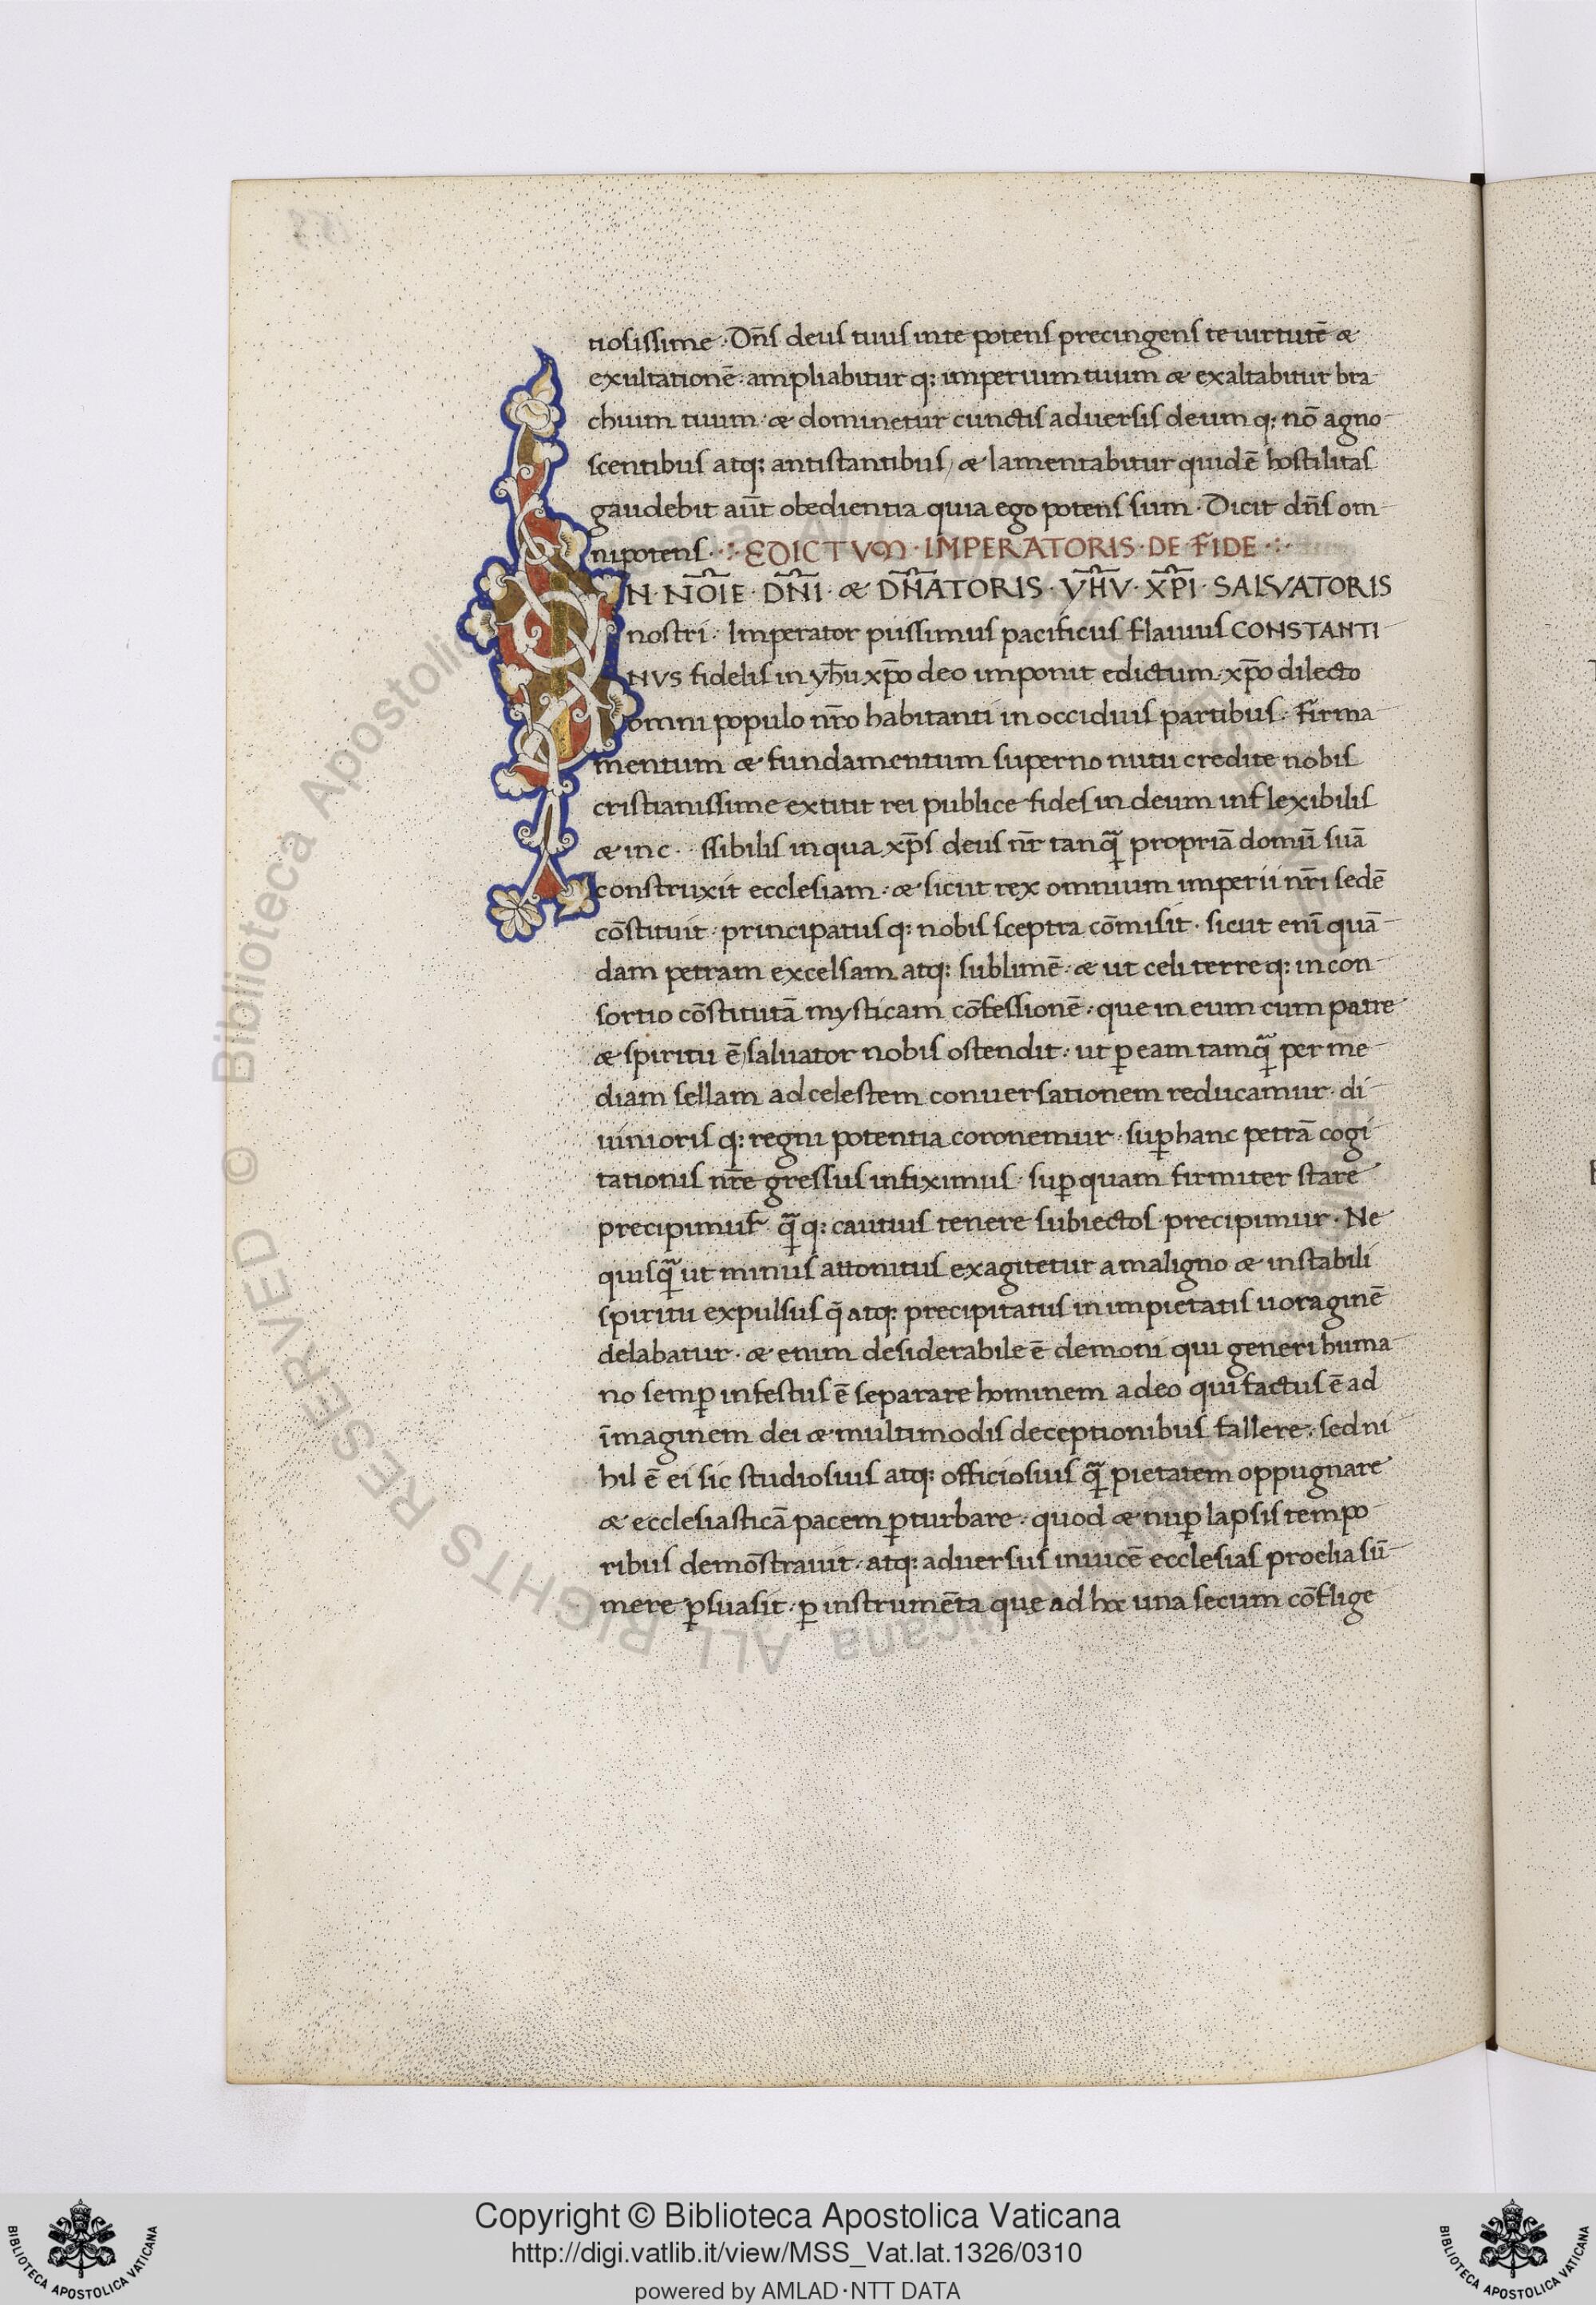 tiosissime · Dn̄s deus tuus inte potens precingens te uirtutē &
exultationē · ampliabitur q; imperium tuum & exaltabitur bra
chium tuum · & dominetur cunctis aduersis deum q; nō agno
scentibus atq; antistantibus, & lamentabitur quidē hostilitas
gaudebit aūt obedientia quia ego potens sum · Dicit dn̄s om
nipotens · : · EDICTVM · IMPERATORIS · DE · FIDE · : ·
IN · NŌIE · DN̄I · & DN̄ATORIS · YH̄V · XP̄I · SALVATORIS
nostri · Imperator piissimus pacificus flauius CONSTANTI
NVS fidelis in yh̄u xp̄o deo imponit edictum · xp̄o dilecto
omni populo nr̄o habitanti in occiduis partibus · Firma
mentum & fundamentum superno nutu credite nobis
cristianissime extitit rei publice fides in deum inflexibilis
& inc · ssibilis in qua xp̄s deus nr̄ tanq̄ propriā domū suā
construxit ecclesiam · & sicut rex omnium imperii nr̄i sedē
cōstituit · principatus q; nobis sceptra cōmisit · sicut enī quā
dam petram excelsam atq; sublimē · & ut celi terre q; in con
sortio cōstitutā mysticam cōfessionē · que in eum cum patre
& spiritu ē saluator nobis ostendit · ut p̱ eam tamq̄ per me
diam sellam ad celestem conuersationem reducamur · di
uinioris q; regni potentia coronemur · sup̱ hanc petrā cogi
tationis nr̄e gressus infiximus · sup̱ quam firmiter stare
precipimur · q̄ q; cautius tenere subiectos precipimur · Ne
quisq̄ ut minus attonitus exagitetur a maligno & instabili
spiritu expulsus q̄ atq; precipitatus in impietatis uoraginē
delabatur · & enim desiderabile ē demoni qui generi huma
no semp̱ infestus ē separare hominem a deo qui factus ē ad
īmaginem dei & multimodis deceptionibus fallere · sed ni
hil ē ei sic studiosius atq; officiosius q̄ pietatem oppugnare
& ecclesiasticā pacem p̱turbare · quod & nup̱ lapsis tempo
ribus demōstrauit · atq; aduersus inuicē ecclesias proelia sū
mere p̱suasit · p̱ instrumēta que ad hoc una secum cōflige
© Biblioteca Apostolica Vaticana ALL RIGHTS RESERVED
Copyright © Biblioteca Apostolica Vaticana
http://digi.vatlib.it/view/MSS_Vat.lat.1326/0310
powered by AMLAD·NTT DATA
BIBLIOTECA APOSTOLICA VATICANA
BIBLIOTECA APOSTOLICA VATICANA